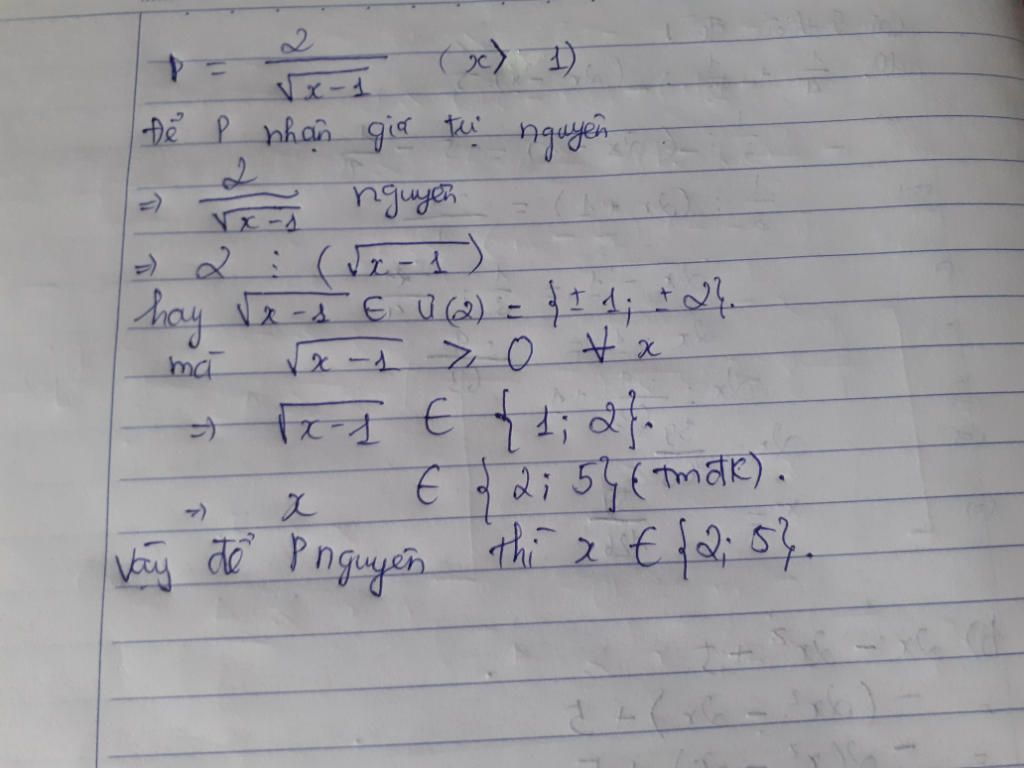 P = 2/√(x-1) (x > 1)
Để P nhận giá trị nguyên
=> 2/√(x-1) nguyên
=> 2 ⋮ (√(x-1))
hay √(x-1) ∈ Ư(2) = {±1; ±2}.
mà √(x-1) ≥ 0 ∀ x
=> √(x-1) ∈ {1; 2}.
=> x ∈ {2; 5} (tmđk).
Vậy để P nguyên thì x ∈ {2; 5}.